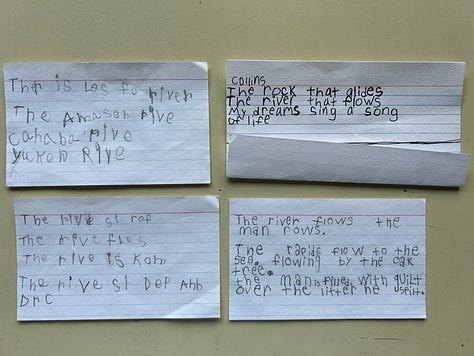 Thir is los fo river
The Amason rive
Cahaba rive
Yukon Rive
Collins
The rock that glides
The river that flows
My dreams sing a song
of life
The rive si rof
The rive flos
The rive is kom
The rive si Dep Ahb
Drc
The river flows the
man rows.
The rapids flow to the
sea. flowing by the oak
tree.
the man filled with guilt
over the litter he spilt.